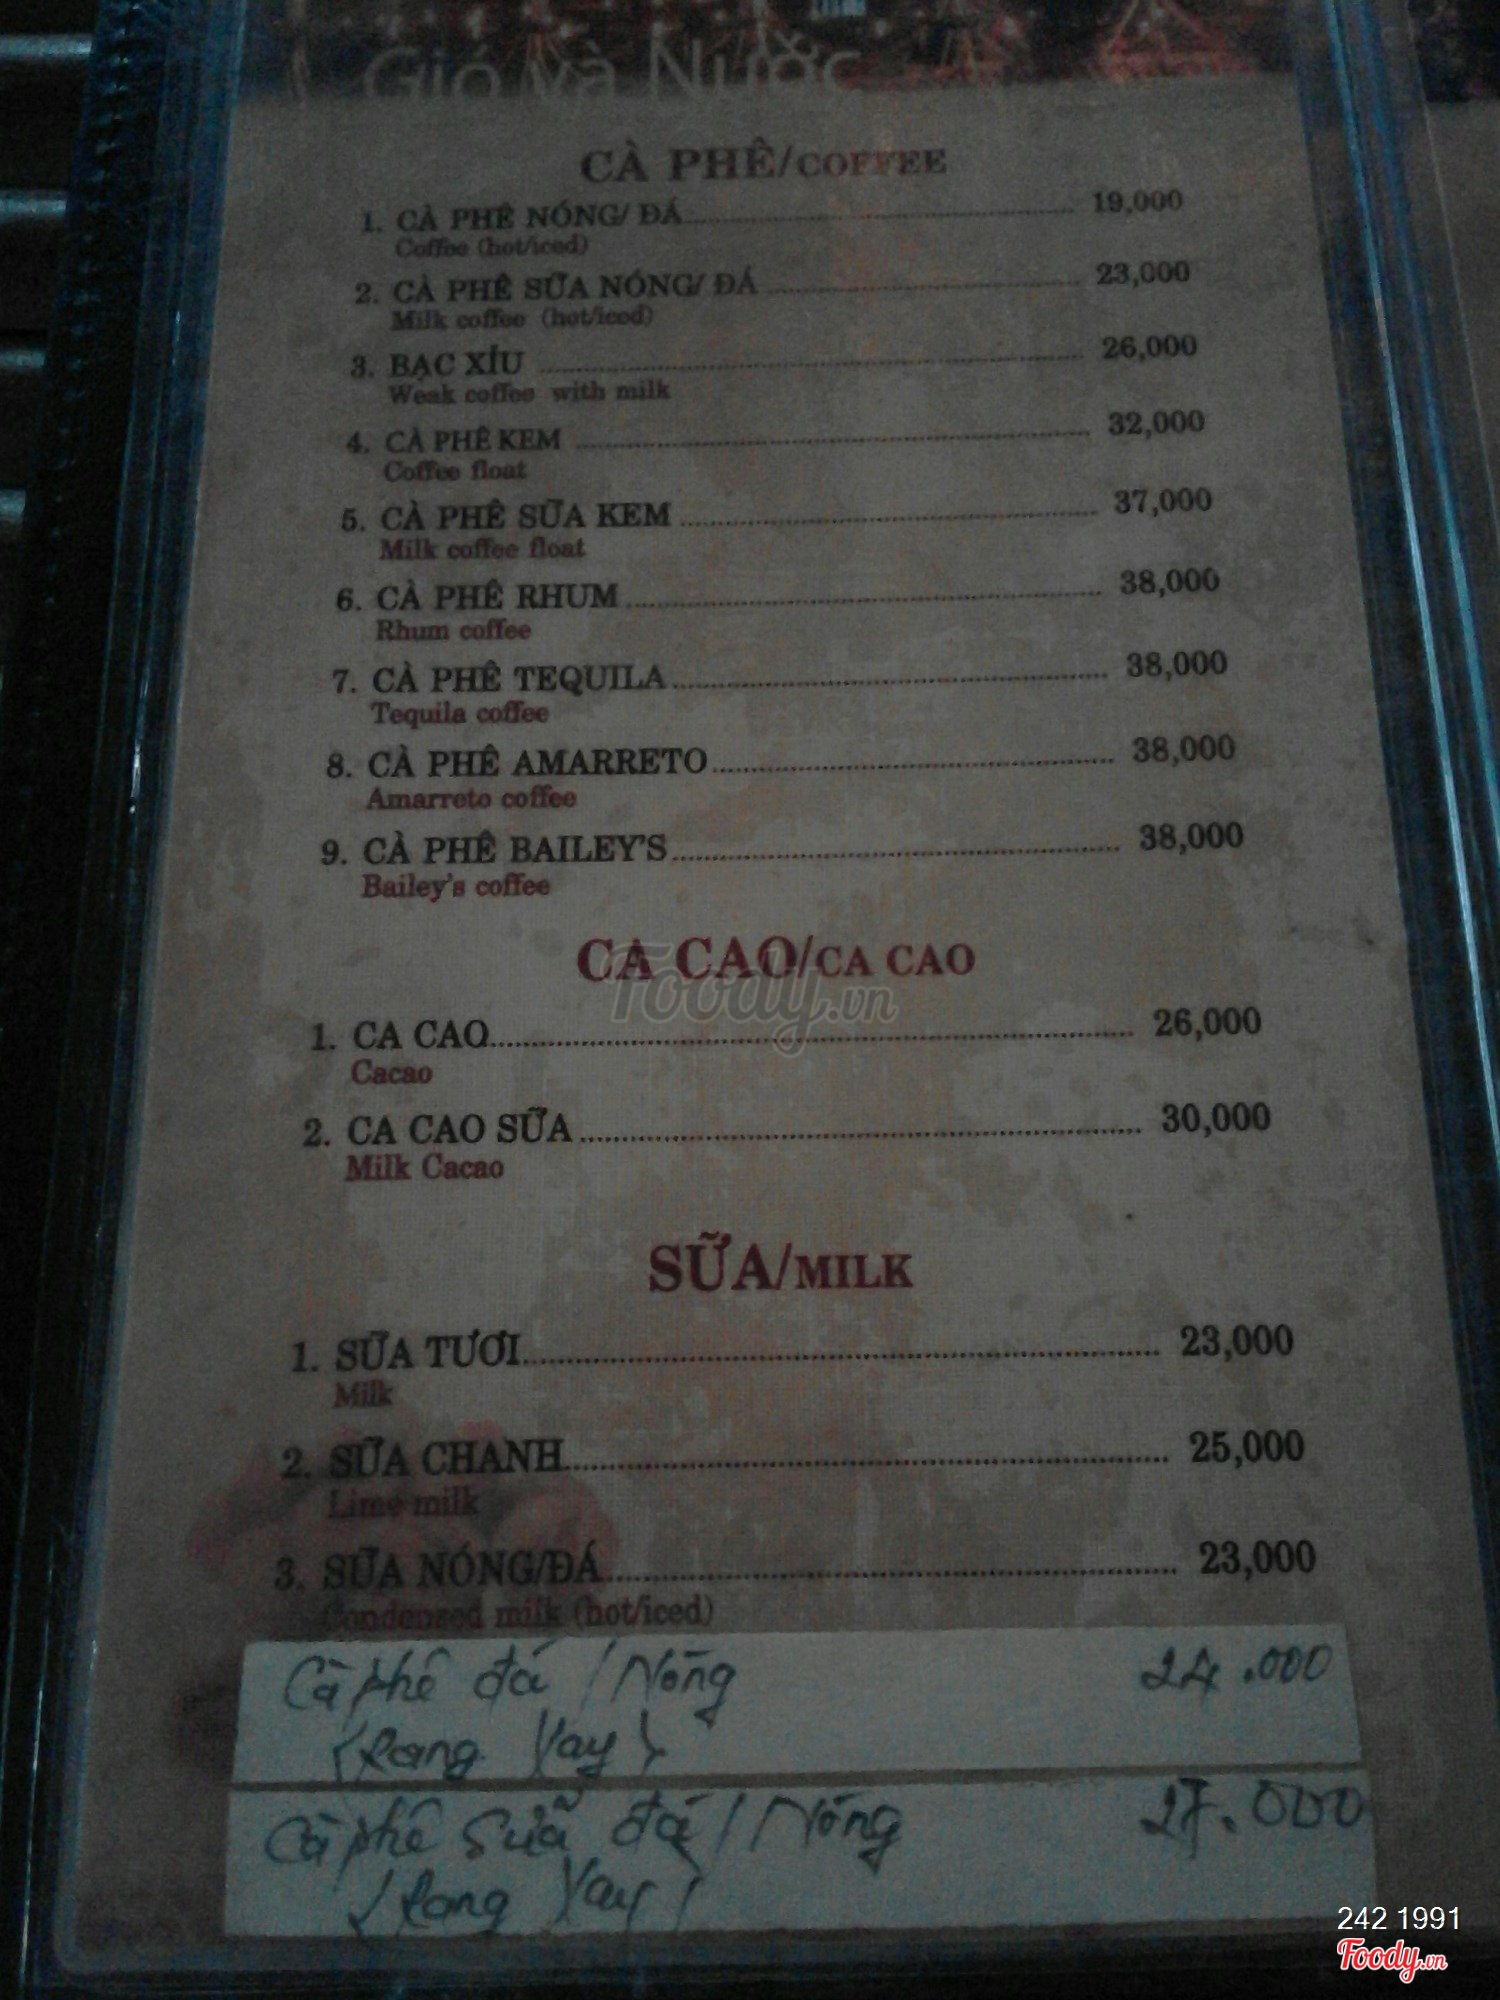 Gió và Nước
CÀ PHÊ/COFFEE
1. CÀ PHÊ NÓNG/ ĐÁ 19,000
Coffee (hot/iced)
2. CÀ PHÊ SỮA NÓNG/ ĐÁ 23,000
Milk coffee (hot/iced)
3. BẠC XÍU 26,000
Weak coffee with milk
4. CÀ PHÊ KEM 32,000
Coffee float
5. CÀ PHÊ SỮA KEM 37,000
Milk coffee float
6. CÀ PHÊ RHUM 38,000
Rhum coffee
7. CÀ PHÊ TEQUILA 38,000
Tequila coffee
8. CÀ PHÊ AMARRETO 38,000
Amarreto coffee
9. CÀ PHÊ BAILEY'S 38,000
Bailey's coffee
CA CAO/CA CAO
Foody.vn
1. CA CAO 26,000
Cacao
2. CA CAO SỮA 30,000
Milk Cacao
SỮA/MILK
1. SỮA TƯƠI 23,000
Milk
2. SỮA CHANH 25,000
Lime milk
3. SỮA NÓNG/ĐÁ 23,000
Condensed milk (hot/iced)
Cà phê đá / Nóng 24.000
(Rang Xay)
Cà phê sữa đá / Nóng 27.000
(Rang Xay)
242 1991
Foody.vn